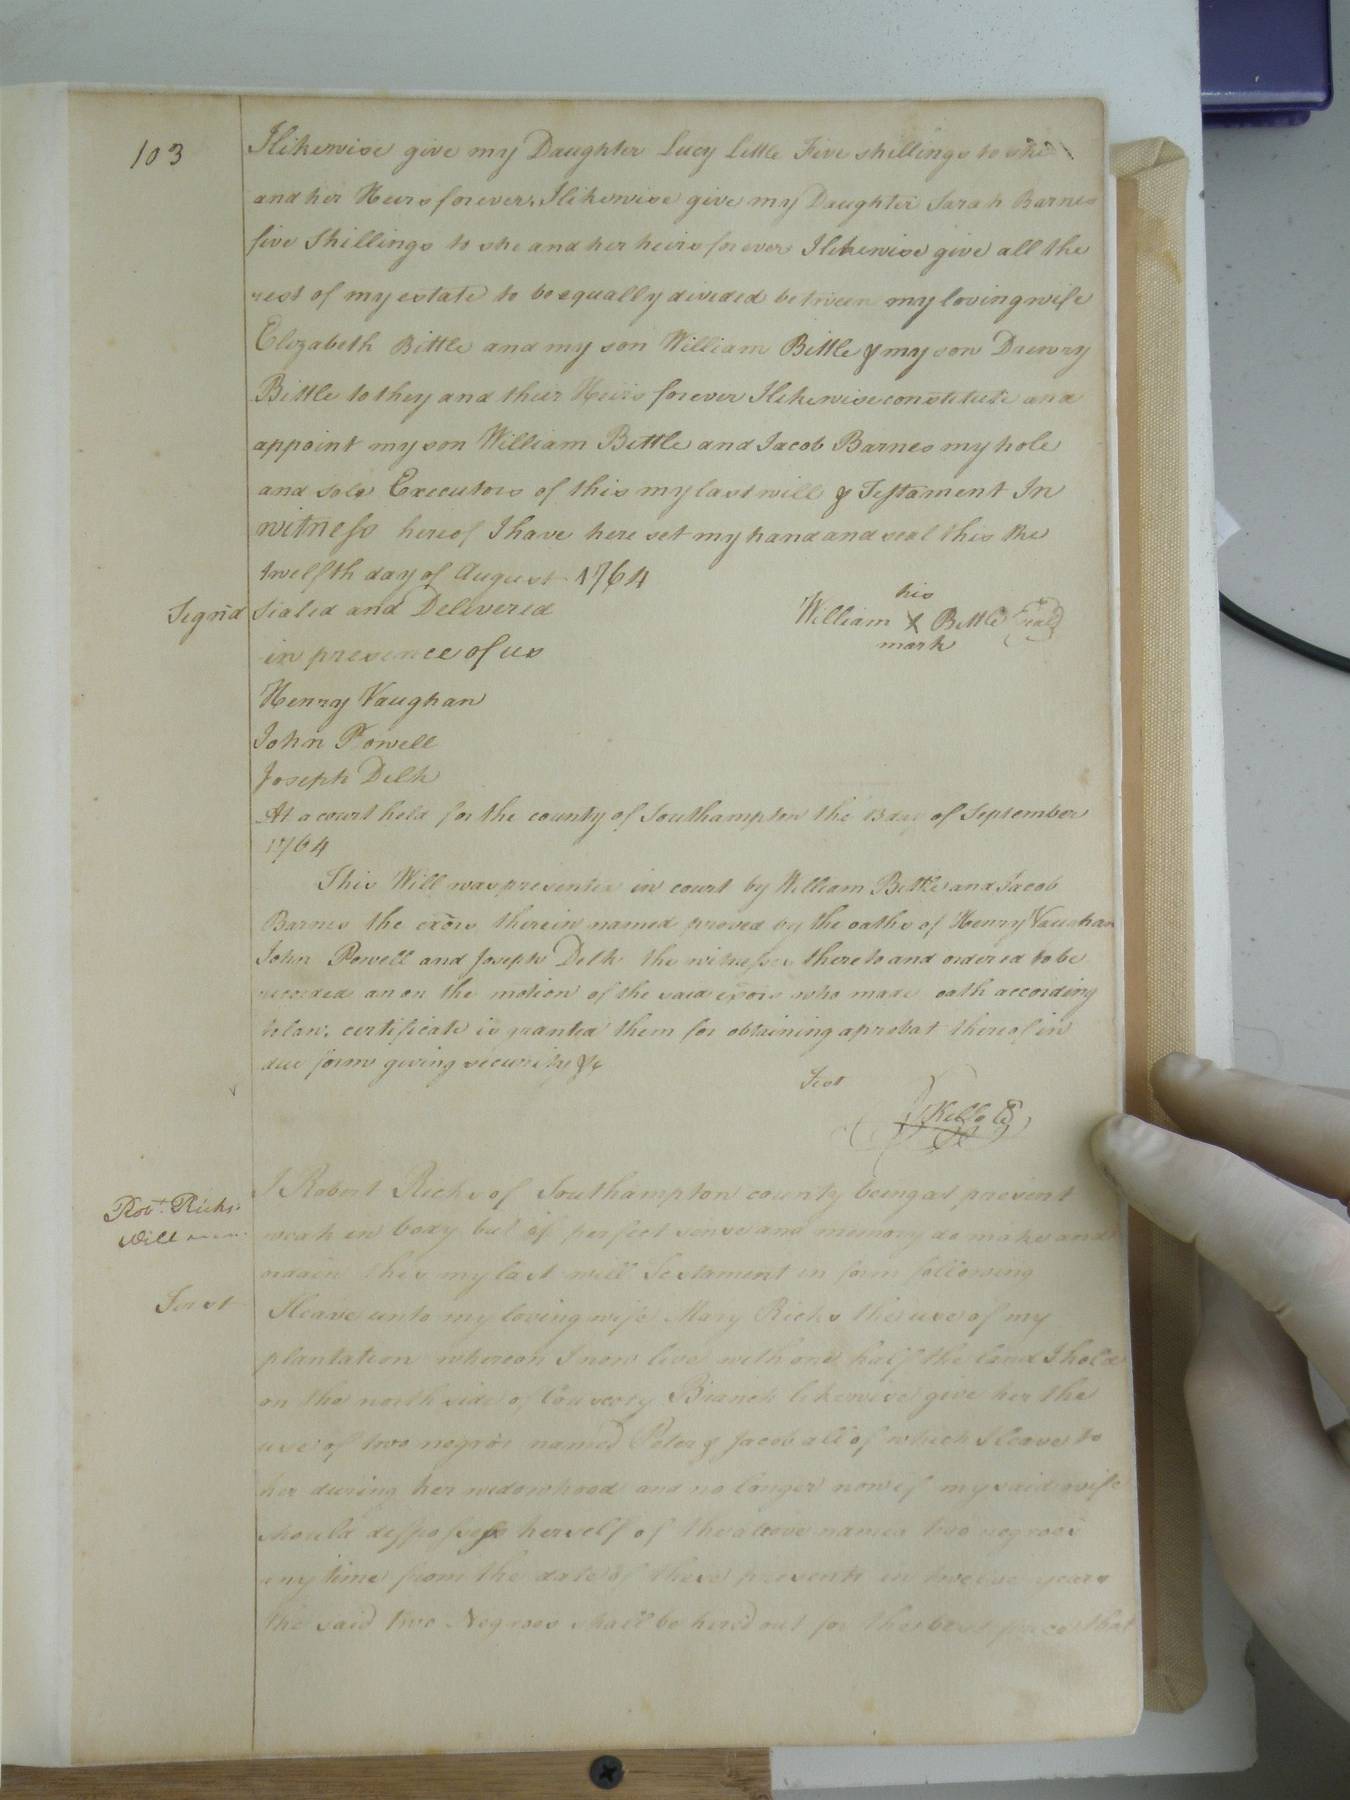 103
I likewise give my Daughter Lucy Little Five shillings to she
and her Heirs forever. I likewise give my Daughter Sarah Barnes
five Shillings to she and her heirs forever I likewise give all the
rest of my estate to be equally divided between my loving wife
Elizabeth Bittle and my son William Bittle & my son Drewry
Bittle to they and their Heirs forever I likewise constitute and
appoint my son William Bittle and Jacob Barnes my hole
and solo Executors of this my last will & Testament In
witness hereof I have here set my hand and seal this the
twelfth day of August 1764
Signd Sealed and Delivered
in presence of us
his
William X Bittle Seal
mark
Henry Vaughan
John Powell
Joseph Delk
At a court held for the county of Southampton the 13 day of September
1764
This Will was presented in court by William Bittle and Jacob
Barnes the exors therein named proved by the oaths of Henry Vaughan
John Powell and Joseph Delk the witnesses thereto and ordered to be
recorded an on the motion of the said exors who made oath according
to law, certificate is granted them for obtaining a probat thereof in
due form giving security &c
Test
Kello
Robt. Ricks
Will
I Robert Ricks of Southampton county being at present
weak in body but of perfect sense and memory do make and
ordain this my last will Testament in form following
First I leave unto my loving wife Mary Ricks the use of my
plantation whereon I now live with one half the land I hold
on the north side of Branch likewise give her the
use of two negros named Peter & Jacob all of which I leave to
her during her widowhood and no longer now if my said wife
should disposess herself of the above named two negroes
any time from the date of these presents in twelve years
the said two Negroes shall be hired out for the best price that